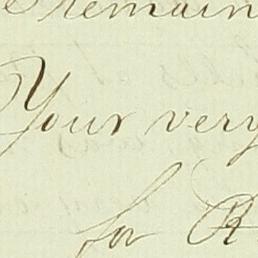 remain
Your very
for R